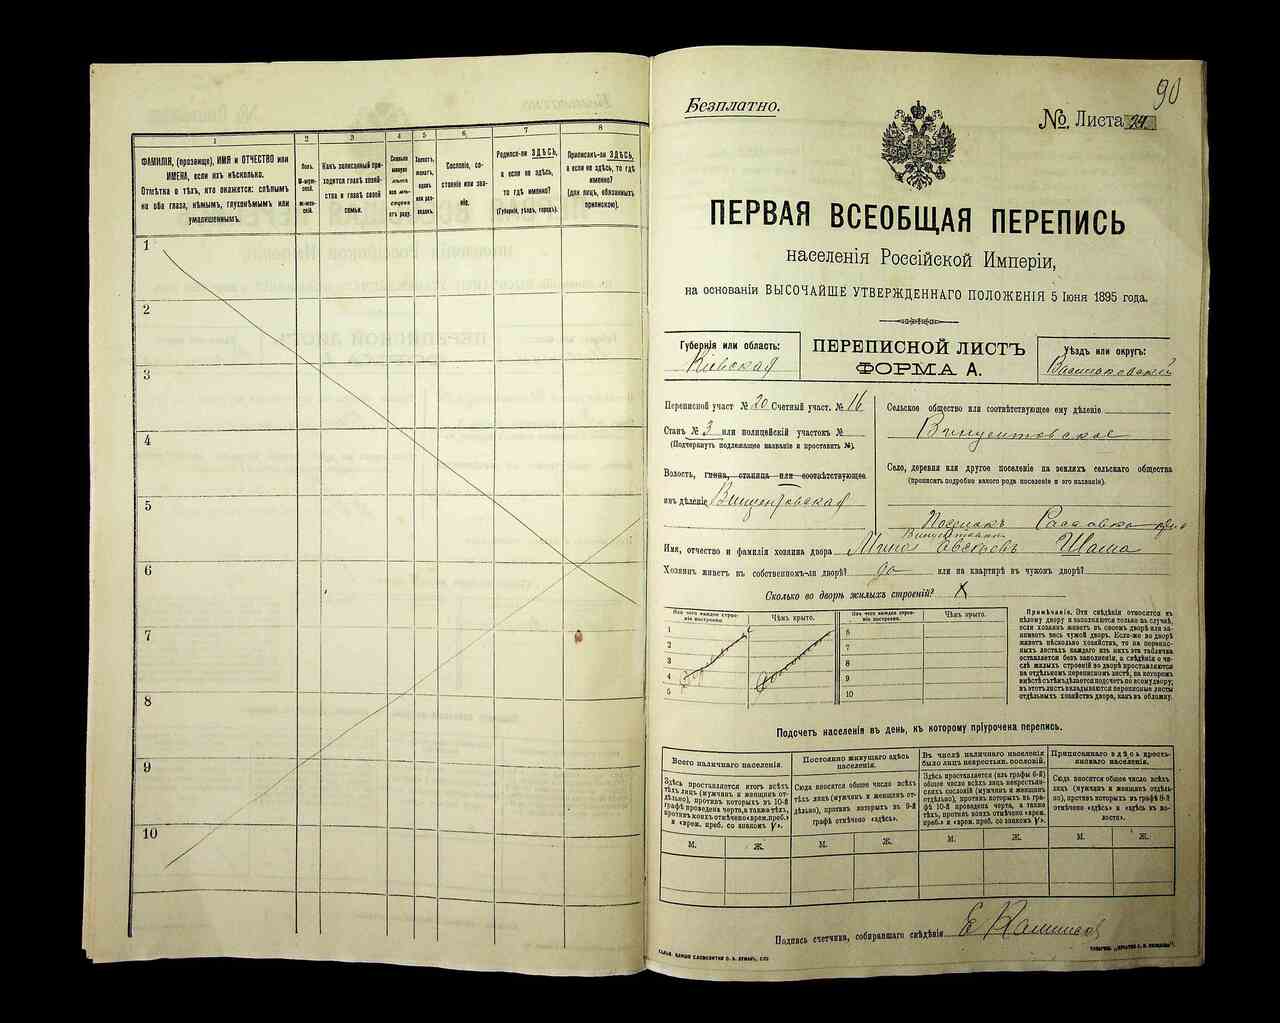 1
2
3
4
5
6
7
8
ФАМИЛІЯ, (прозвище), ИМЯ и ОТЧЕСТВО или
ИМЕНА, если ихъ нѣсколько.
Отмѣтка о тѣхъ, кто окажется: слѣпымъ
на оба глаза, нѣмымъ, глухонѣмымъ или
умалишеннымъ.
Полъ.
М-муж-
ской.
Ж-жен-
скій.
Какъ записанный при-
ходится главѣ хозяй-
ства и главѣ своей
семьи.
Сколько
минуло
лѣтъ
или мѣ-
сяцевъ
отъ роду.
Холостъ,
женатъ,
вдовъ
или раз-
веденъ.
Сословіе, со-
стояніе или зва-
ніе.
Родился-ли ЗДѢСЬ,
а если не здѣсь,
то гдѣ именно?
(Губернія, уѣздъ, городъ).
Приписанъ-ли ЗДѢСЬ,
а если не здѣсь, то гдѣ
именно?
(для лицъ, обязанныхъ
припискою).
1
2
3
4
5
6
7
8
9
10
90
Безплатно.
№ Листа 24
ПЕРВАЯ ВСЕОБЩАЯ ПЕРЕПИСЬ
населенія Россійской Имперіи,
на основаніи ВЫСОЧАЙШЕ УТВЕРЖДЕННАГО ПОЛОЖЕНІЯ 5 Іюня 1895 года.
Губернія или область:
Кіевская
ПЕРЕПИСНОЙ ЛИСТЪ
ФОРМА А.
Уѣздъ или округъ:
Васильковскій
Переписной участ № 20 Счетный участ. № 16
Станъ № 3 или полицейскій участокъ №
(Подчеркнуть подлежащее названіе и проставить №).
Волость, гмина, станица или соотвѣтствующее
имъ дѣленіе Винцентовская
Сельское общество или соотвѣтствующее ему дѣленіе
Винцентовское
Село, деревня или другое поселеніе на земляхъ сельскаго общества
(прописать подробно какого рода поселеніе и его названіе).
Поселокъ
Имя, отчество и фамилія хозяина двора
Хозяинъ живетъ въ собственномъ-ли дворѣ? да или на квартирѣ въ чужомъ дворѣ?
Сколько во дворѣ жилыхъ строеній? X
Изъ чего каждое строе-
ніе построено.
Чѣмъ крыто.
Изъ чего каждое строе-
ніе построено.
Чѣмъ крыто.
1
2
3
4
5
6
7
8
9
10
Примѣчаніе. Эти свѣдѣнія относятся къ
цѣлому двору и заполняются только въ случаѣ,
если хозяинъ живетъ въ своемъ дворѣ или за-
нимаетъ весь чужой дворъ. Если-же во дворѣ
живетъ нѣсколько хозяйствъ, то на перепис-
ныхъ листахъ каждаго изъ нихъ эта табличка
оставляется безъ заполненія, а свѣдѣнія о чи-
слѣ жилыхъ строеній во дворѣ проставляются
на отдѣльномъ переписномъ листѣ, на которомъ
вмѣстѣ съ тѣмъ дѣлается подсчетъ по всему двору;
въ этотъ листъ вкладываются переписные листы
отдѣльныхъ хозяйствъ двора, какъ въ обложку.
Подсчетъ населенія въ день, къ которому пріурочена перепись.
Всего наличнаго населенія.
Здѣсь проставляется итогъ всѣхъ
тѣхъ лицъ (мужчинъ и женщинъ от-
дѣльно), противъ которыхъ въ 10-й
графѣ проведена черта, а также тѣхъ,
противъ коихъ отмѣчено «врем. преб.»
и «врем. преб. со знакомъ V».
Постоянно живущаго здѣсь
населенія.
Сюда вносится общее число всѣхъ
тѣхъ лицъ (мужчинъ и женщинъ от-
дѣльно), противъ которыхъ въ 9-й
графѣ отмѣчено «здѣсь».
Въ числѣ наличнаго населенія
было лицъ некрестьян. сословій.
Здѣсь проставляется (изъ графы 6-й)
общее число всѣхъ лицъ некрестьян-
скихъ сословій (мужчинъ и женщинъ
отдѣльно), противъ которыхъ въ гра-
фѣ 10-й проведена черта, а также
тѣхъ, противъ коихъ отмѣчено «врем.
преб.» и «врем. преб. со знакомъ V».
Приписаннаго здѣсь кресть-
янскаго населенія.
Сюда вносятся общее число всѣхъ
лицъ (мужчинъ и женщинъ отдѣль-
но), противъ которыхъ въ графѣ 8-й
отмѣчено «здѣсь» и «здѣсь въ во-
лости».
М.
Ж.
М.
Ж.
М.
Ж.
М.
Ж.
Подпись счетчика, собиравшаго свѣдѣнія